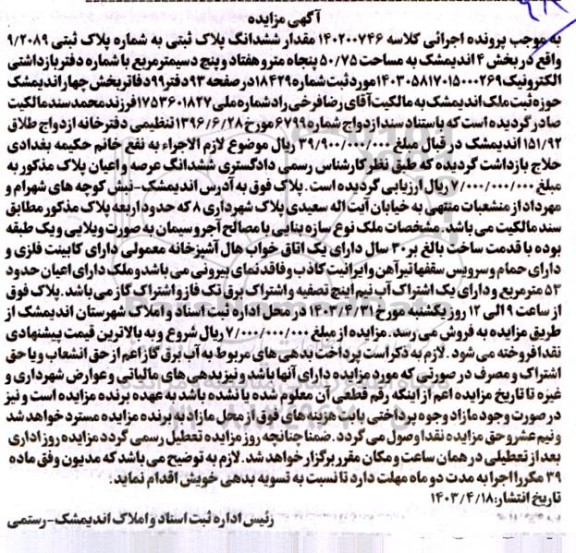 آگهی مزایده
به موجب پرونده اجرائی کلاسه ۱۴۰۲۰۰۷۴۶ مقدار ششدانگ پلاک ثبتی به شماره پلاک ثبتی ۹/۲۰۸۹
واقع در بخش ۴ اندیمشک به مساحت ۵۰/۷۵ پنجاه متر و هفتاد و پنج دسیمترمربع با شماره دفتر بازداشتی
الکترونیک ۱۴۰۳۰۵۸۱۷۰۱۵۰۰۰۲۶۹ مورد ثبت شماره ۱۸۴۲۹ در صفحه ۹۳ دفتر ۹۹ دفاتر بخش چهار اندیمشک
حوزه ثبت ملک اندیمشک به مالکیت آقای رضا فرخی راد شماره ملی ۱۷۵۳۶۰۱۸۲۷ فرزند محمد سند مالکیت
صادر گردیده است که باستناد سند ازدواج شماره ۶۷۹۹ مورخ ۱۳۹۶/۶/۲۸ تنظیمی دفترخانه ازدواج طلاق
۱۵۱/۹۲ اندیمشک در قبال مبلغ ۳۹/۹۰۰/۰۰۰/۰۰۰ ریال موضوع لازم الاجراء به نفع خانم حکیمه بغدادی
حلاج بازداشت گردیده که طبق نظر کارشناس رسمی دادگستری ششدانگ عرصه و اعیان پلاک مذکور به
مبلغ ۷/۰۰۰/۰۰۰/۰۰۰ ریال ارزیابی گردیده است. پلاک فوق به آدرس اندیمشک-نبش کوچه های شهرام و
مهرداد از منشعبات منتهی به خیابان آیت اله سعیدی پلاک شهرداری ۸ که حدود اربعه پلاک مذکور مطابق
سند مالکیت می باشد. مشخصات ملک نوع سازه بنایی با مصالح آجر و سیمان به صورت ویلایی و یک طبقه
بوده با قدمت ساخت بالغ بر ۳۰ سال دارای یک اتاق خواب هال آشپزخانه معمولی دارای کابینت فلزی و
دارای حمام و سرویس سقفها تیرآهن و ایرانیت کاذب و فاقد نمای بیرونی می باشد و ملک دارای اعیان حدود
۵۳ مترمربع و دارای یک اشتراک آب نیم اینچ تصفیه و اشتراک برق تک فاز و اشتراک گاز می باشد. پلاک فوق
از ساعت ۹ الی ۱۲ روز یکشنبه مورخ ۱۴۰۳/۴/۳۱ در محل اداره ثبت اسناد و املاک شهرستان اندیمشک از
طریق مزایده به فروش می رسد. مزایده از مبلغ ۷/۰۰۰/۰۰۰/۰۰۰ ریال شروع و به بالاترین قیمت پیشنهادی
نقدا فروخته می شود. لازم به ذکر است پرداخت بدهی های مربوط به آب برق گاز اعم از حق انشعاب و یا حق
اشتراک و مصرف در صورتی که مورد مزایده دارای آنها باشد و نیز بدهی های مالیاتی و عوارض شهرداری و
غیره تا تاریخ مزایده اعم از اینکه رقم قطعی آن معلوم شده یا نشده باشد به عهده برنده مزایده است و نیز
در صورت وجود مازاد وجوه پرداختی بابت هزینه های فوق از محل مازاد به برنده مزایده مسترد خواهد شد
و نیم عشر و حق مزایده نقدا وصول می گردد. ضمنا چنانچه روز مزایده تعطیل رسمی گردد مزایده روز اداری
بعد از تعطیلی در همان ساعت و مکان مقرر برگزار خواهد شد. لازم به توضیح می باشد که مدیون وفق ماده
۳۹ مکرر اجرا به مدت دو ماه مهلت دارد تا نسبت به تسویه بدهی خویش اقدام نماید.
تاریخ انتشار: ۱۴۰۳/۴/۱۸
رئیس اداره ثبت اسناد و املاک اندیمشک-رستمی